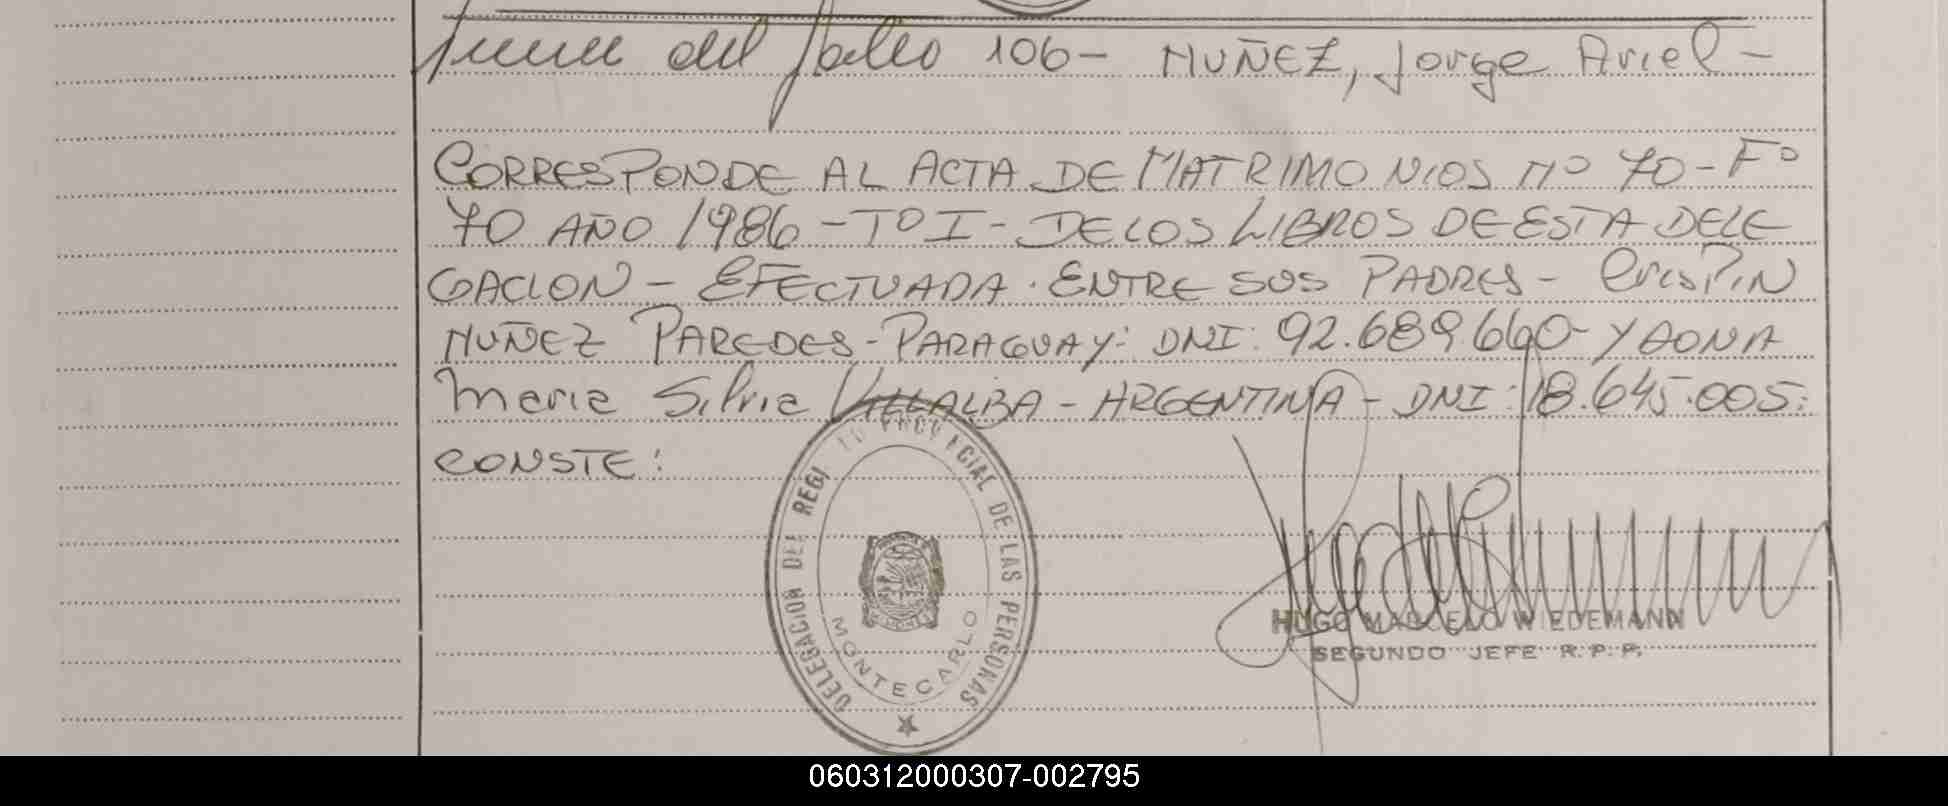 Viene del folio 106- NUÑEZ, Jorge Ariel-
CORRESPONDE AL ACTA DE MATRIMONIOS Nº 70-Fº
70 AÑO 1986-TºI-DE LOS LIBROS DE ESTA DELE
GACION - EFECTUADA. ENTRE SUS PADRES- CrisPIN
NUÑEZ PAREDES-PARAGUAY: DNI: 92.689.660- Y DONA
Maria Silvia VILLALBA - ARGENTINA - DNI: 18.645.005.
CONSTE:
DELEGACION DEL REGISTRO PROVINCIAL DE LAS PERSONAS
MONTECARLO
HUGO MARCELO WIEDEMANN
SEGUNDO JEFE R.P.P.
060312000307-002795